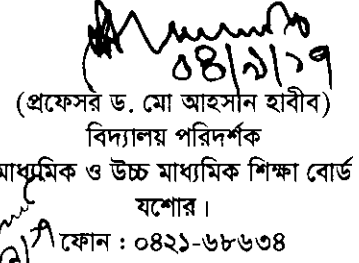 ০৪/৯/১৭
(প্রফেসর ড. মো আহসান হাবীব)
বিদ্যালয় পরিদর্শক
মাধ্যমিক ও উচ্চ মাধ্যমিক শিক্ষা বোর্ড
যশোর।
ফোন : ০৪২১-৬৮৬৩৪